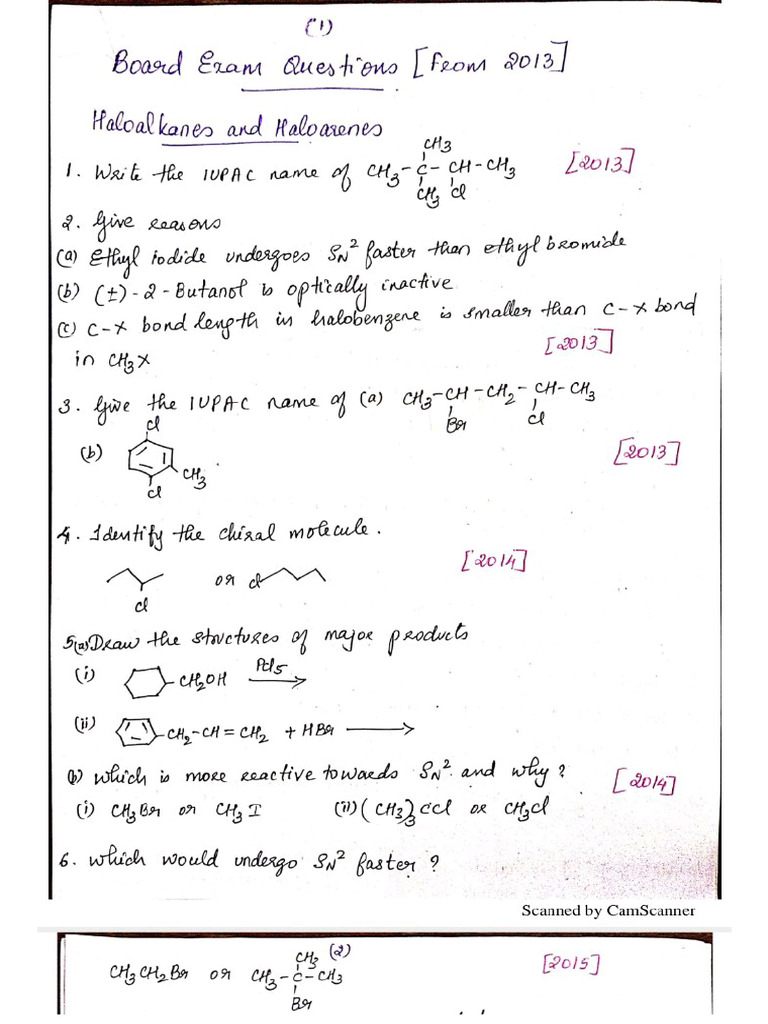 (1)
Board Exam Questions [From 2013]
Haloalkanes and Haloarenes
CH3
1. Write the IUPAC name of CH3-C-CH-CH3 [2013]
CH3 Cl
2. Give reasons
(a) Ethyl iodide undergoes SN2 faster than ethyl bromide
(b) (±)-2-Butanol is optically inactive
(c) C-X bond length in halobenzene is smaller than C-X bond
in CH3X [2013]
3. Give the IUPAC name of (a) CH3-CH-CH2-CH-CH3
Br Cl
(b) Cl
CH3
Cl
[2013]
4. Identify the chiral molecule.
[2014]
or Cl
Cl
5(a) Draw the structures of major products
(i) CH2OH PCl5
(ii) CH2-CH=CH2 + HBr
(b) which is more reactive towards SN2 and why? [2014]
(i) CH3Br or CH3I (ii) (CH3)3CCl or CH3Cl
6. which would undergo SN2 faster?
Scanned by CamScanner
(2)
CH3
CH3CH2Br or CH3-C-CH3 [2015]
Br